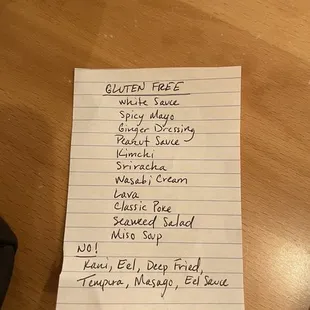 GLUTEN FREE
White Sauce
Spicy Mayo
Ginger Dressing
Peanut Sauce
Kimchi
Sriracha
Wasabi Cream
Lava
Classic Poke
Seaweed Salad
Miso Soup
NO!
Kani, Eel, Deep Fried,
Tempura, Masago, Eel Sauce